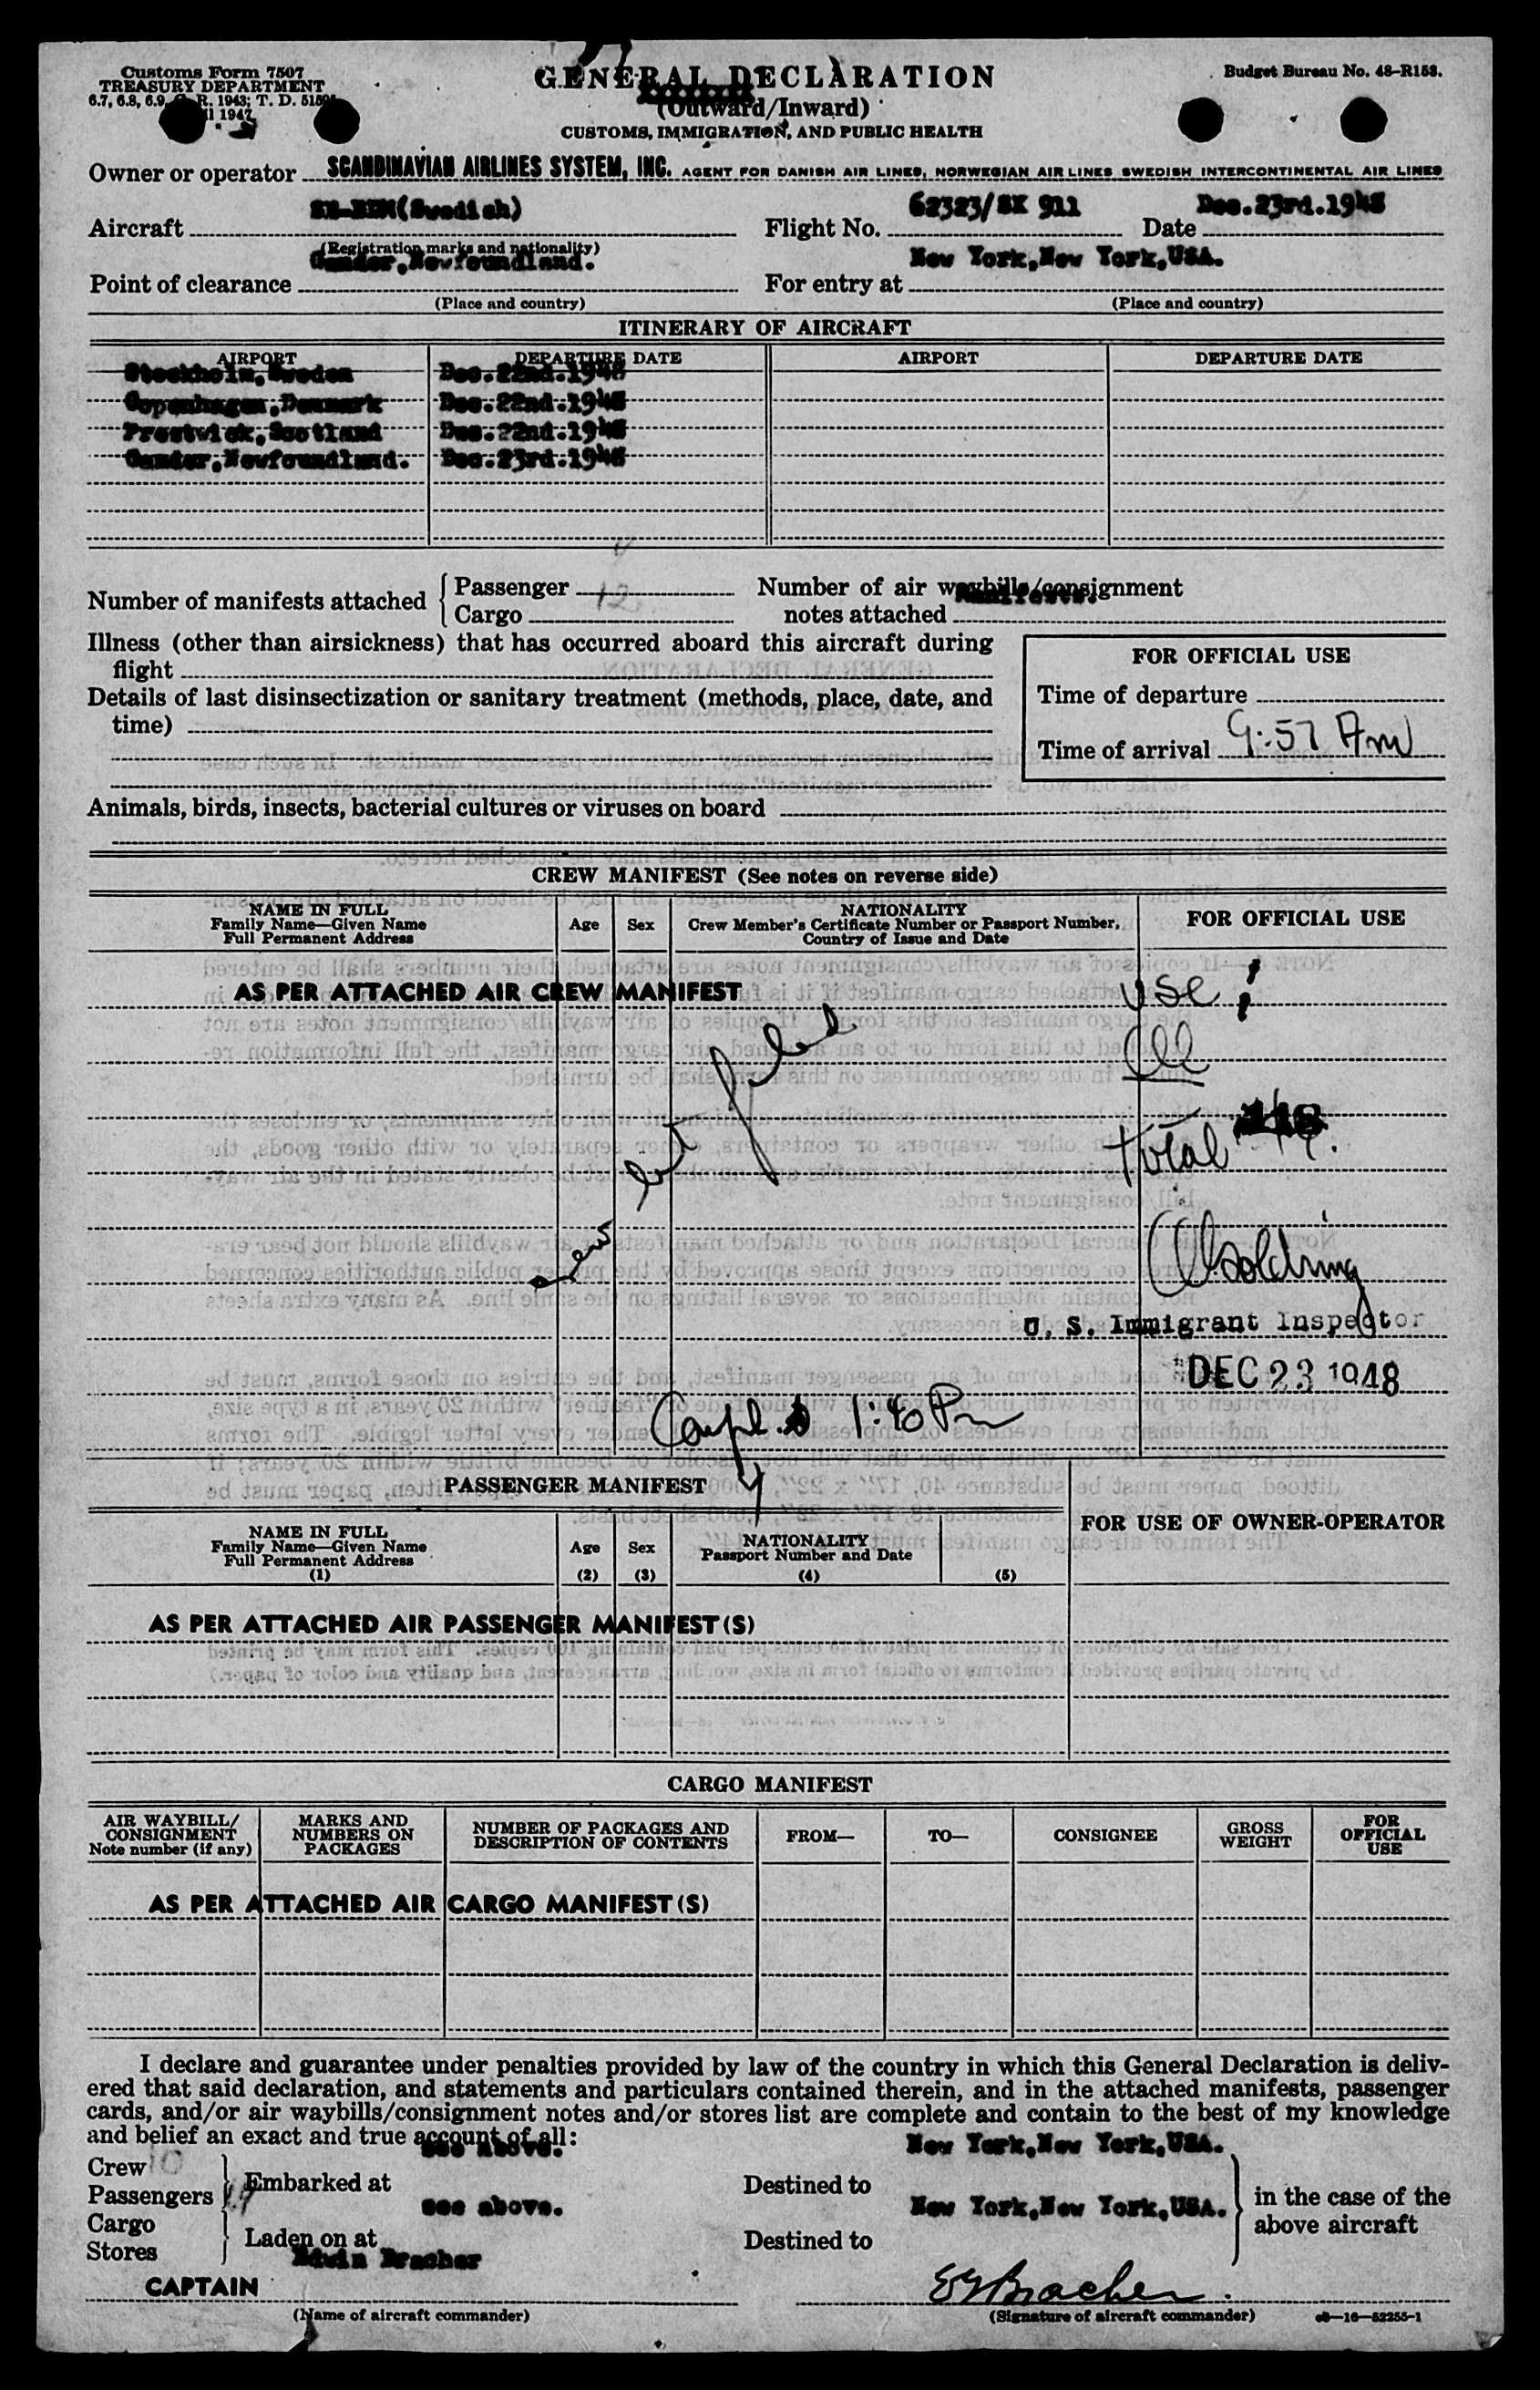 Customs Form 7507
TREASURY DEPARTMENT
6.7, 6.8, 6.9, R. 1943; T. D.
1947
GENERAL DECLARATION
(Outward/Inward)
CUSTOMS, IMMIGRATION, AND PUBLIC HEALTH
Budget Bureau No. 48-R153.
Owner or operator SCANDINAVIAN AIRLINES SYSTEM, INC. AGENT FOR DANISH AIR LINES, NORWEGIAN AIR LINES SWEDISH INTERCONTINENTAL AIR LINES
Aircraft (Swedish) Flight No. 62323/SK 911 Date Dec.23rd.1948
(Registration marks and nationality)
Point of clearance Gander,Newfoundland. For entry at New York,New York,USA.
(Place and country) (Place and country)
ITINERARY OF AIRCRAFT
AIRPORT DEPARTURE DATE AIRPORT DEPARTURE DATE
Stockholm,Sweden Dec.22nd.1948
Copenhagen,Denmark Dec.22nd.1948
Prestwick,Scotland Dec.22nd.1948
Gander,Newfoundland. Dec.23rd.1948
Number of manifests attached { Passenger 12 Number of air waybills/consignment
Cargo notes attached Manifests.
Illness (other than airsickness) that has occurred aboard this aircraft during
flight
Details of last disinsectization or sanitary treatment (methods, place, date, and
time)
FOR OFFICIAL USE
Time of departure
Time of arrival 9:57 Am
Animals, birds, insects, bacterial cultures or viruses on board
CREW MANIFEST (See notes on reverse side)
NAME IN FULL
Family Name—Given Name
Full Permanent Address
Age Sex
NATIONALITY
Crew Member's Certificate Number or Passport Number,
Country of Issue and Date
FOR OFFICIAL USE
AS PER ATTACHED AIR CREW MANIFEST
USC
Total
U. S. Immigrant Inspector
DEC 23 1948
PASSENGER MANIFEST
NAME IN FULL
Family Name—Given Name
Full Permanent Address
(1)
Age
(2)
Sex
(3)
NATIONALITY
Passport Number and Date
(4) (5)
FOR USE OF OWNER-OPERATOR
AS PER ATTACHED AIR PASSENGER MANIFEST(S)
CARGO MANIFEST
AIR WAYBILL/
CONSIGNMENT
Note number (if any)
MARKS AND
NUMBERS ON
PACKAGES
NUMBER OF PACKAGES AND
DESCRIPTION OF CONTENTS
FROM—
TO—
CONSIGNEE
GROSS
WEIGHT
FOR
OFFICIAL
USE
AS PER ATTACHED AIR CARGO MANIFEST(S)
I declare and guarantee under penalties provided by law of the country in which this General Declaration is deliv-
ered that said declaration, and statements and particulars contained therein, and in the attached manifests, passenger
cards, and/or air waybills/consignment notes and/or stores list are complete and contain to the best of my knowledge
and belief an exact and true account of all:
Crew 10
Passengers
Embarked at see above. Destined to New York,New York,USA.
Cargo
Stores
Laden on at see above. Destined to New York,New York,USA.
in the case of the
above aircraft
Edwin Bracher
CAPTAIN
(Name of aircraft commander)
EGBracher.
(Signature of aircraft commander)
16—52255-1